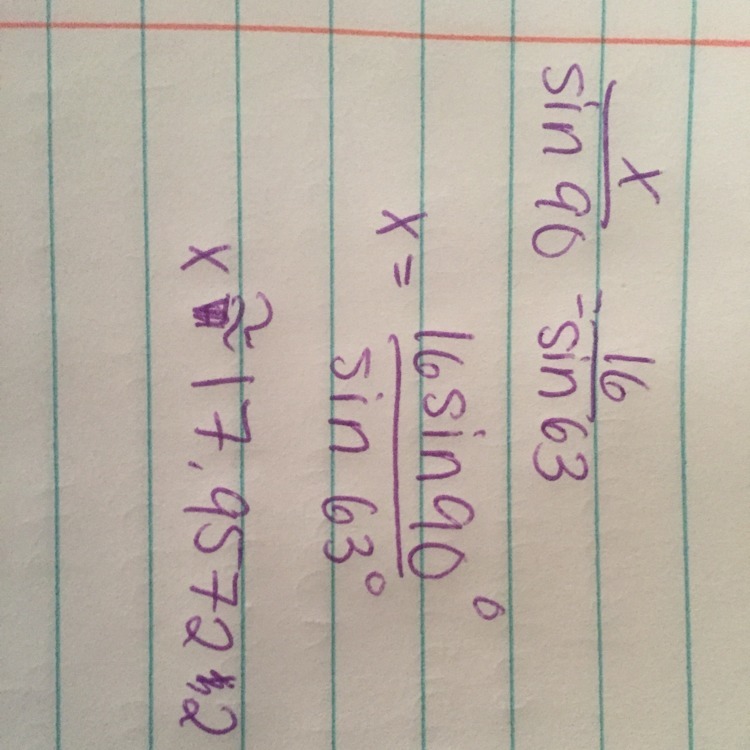 x/sin 90 = 16/sin 63
x = 16 sin 90°/sin 63°
x ≈ 17.95722